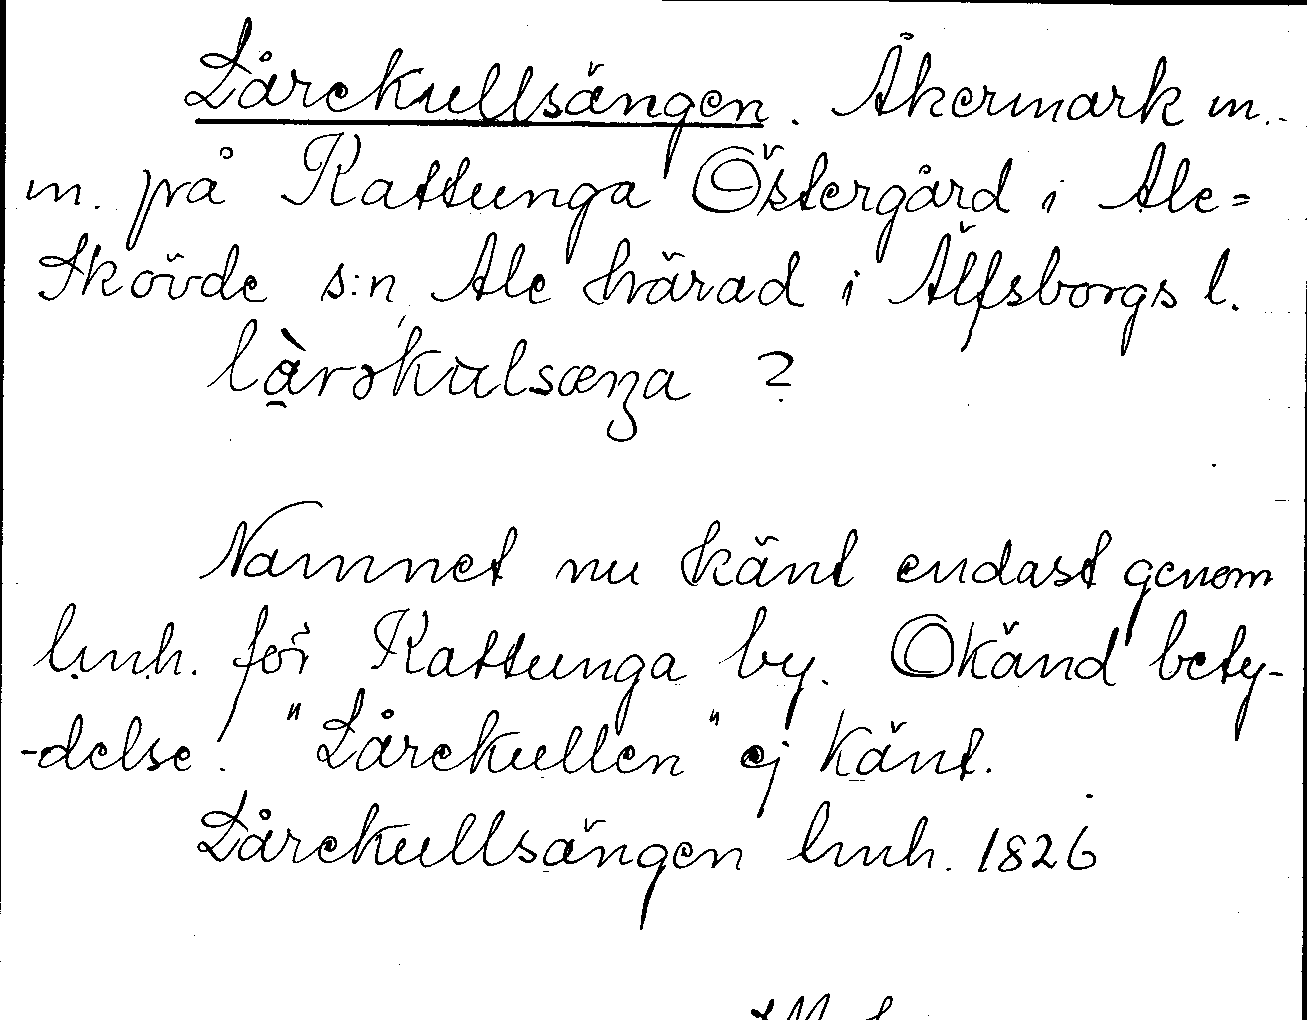 Lårekullsängen. Åkermark m.
m. på Kattunga Östergård i Ale=
Skövde s:n, Ale härad i Älfsborgs l.
làrəkulsæŋa ?
Namnet nu känt endast genom
lmh. för Kattunga by. Okänd bety-
-delse. "Lårekullen" ej känt.
Lårekullsängen lmh. 1826